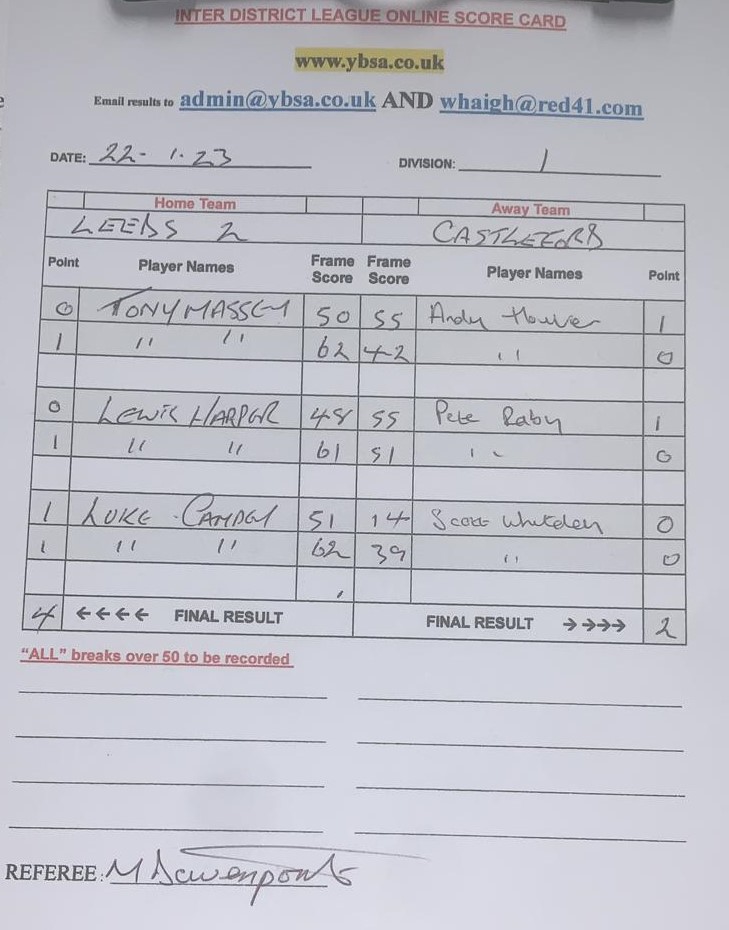 INTER DISTRICT LEAGUE ONLINE SCORE CARD
www.ybsa.co.uk
Email results to admin@ybsa.co.uk AND whaigh@red41.com
DATE: 22-1.23 DIVISION: 1
Home Team Away Team
LEEDS 2 CASTLEFORD
Point Player Names Frame Score Frame Score Player Names Point
0 TONY MASSEY 50 55 Andy 1
1 " " 62 42 " 0
0 LEWIS HARPER 48 55 Pete Raby 1
1 " " 61 51 " 0
1 LUKE 51 14 0
1 " " 62 39 " 0
4 ←←←← FINAL RESULT FINAL RESULT →→→→ 2
"ALL" breaks over 50 to be recorded
REFEREE: M Davenport